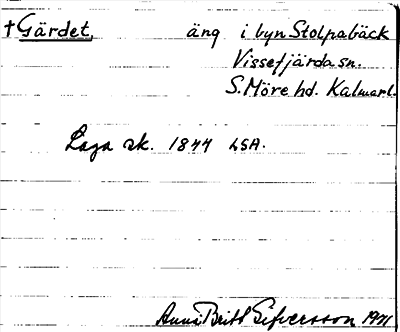 †Gärdet, äng i byn Stolpabäck
Vissefjärda sn.
S. Möre hd. Kalmarl.
Laga sk. 1844 LSA.
Anna Britt Sifversson